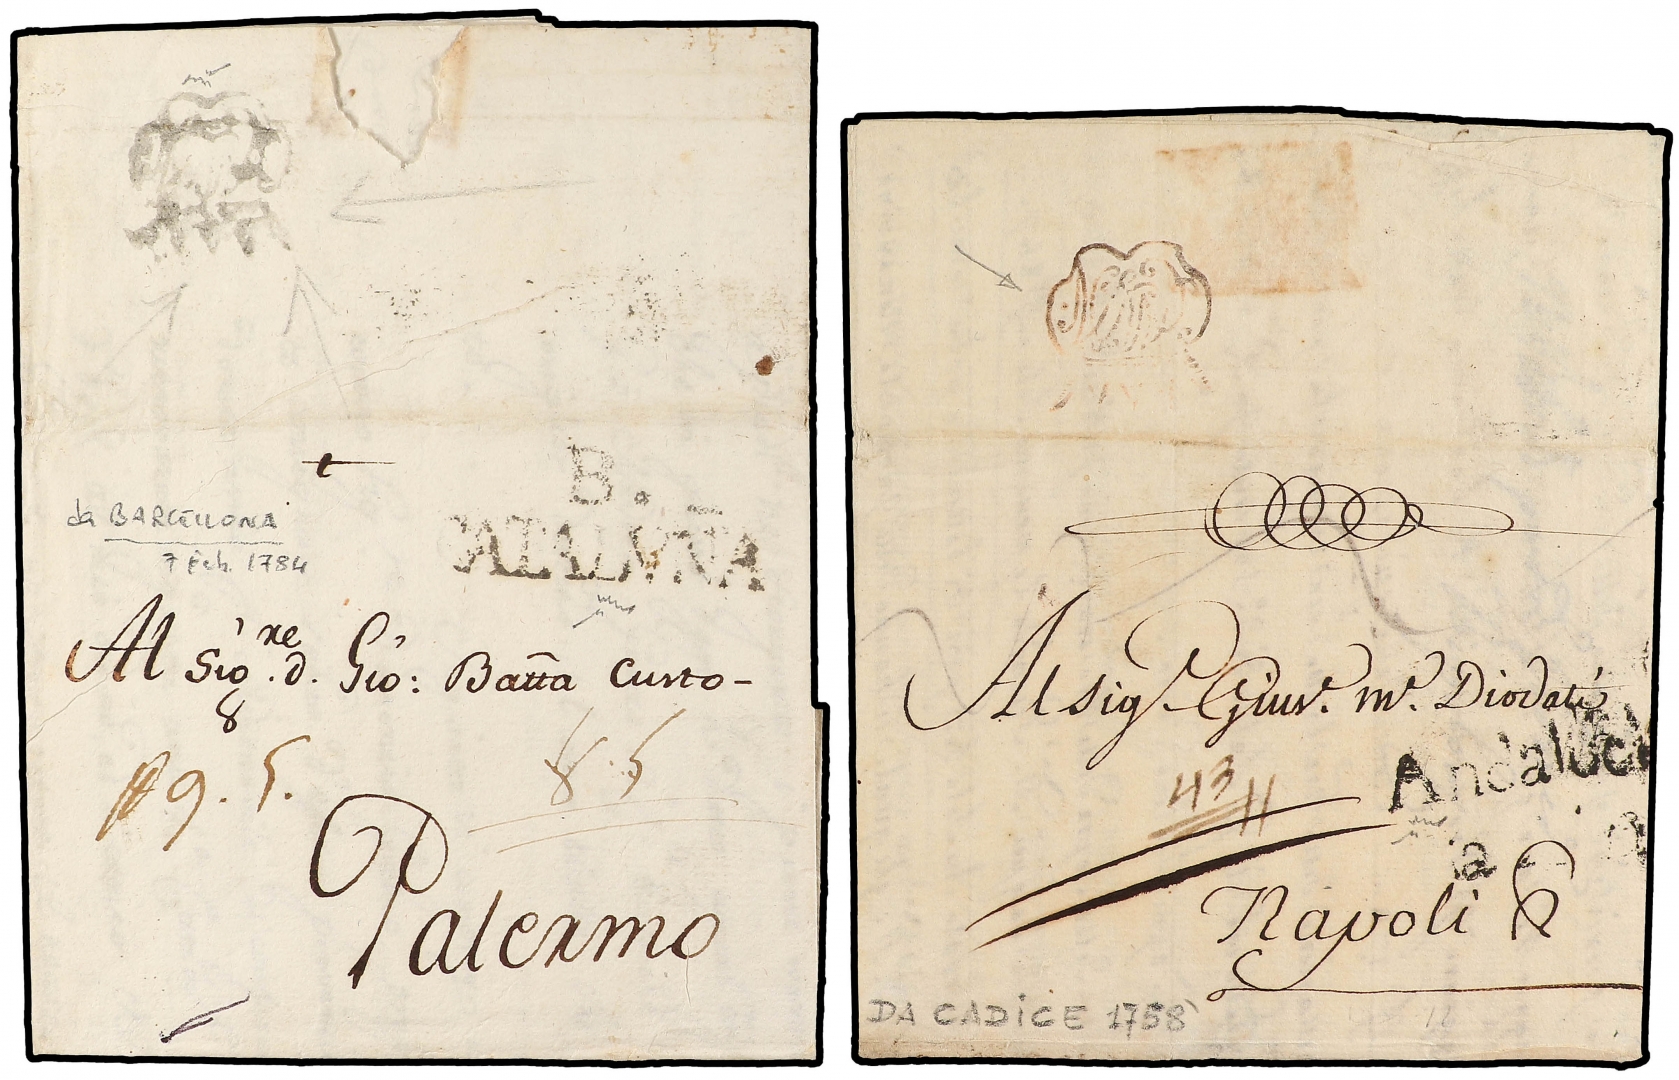 B.
CATALUÑA
da BARCELLONA
7 Feb. 1784
Al Sig.re d. Gio: Batta Custo-
8
9. 5.
8. 5
Palermo
Al Sig.r Gius.e M.a Diodati
Andaluci
a
43
Napoli
DA CADICE 1758